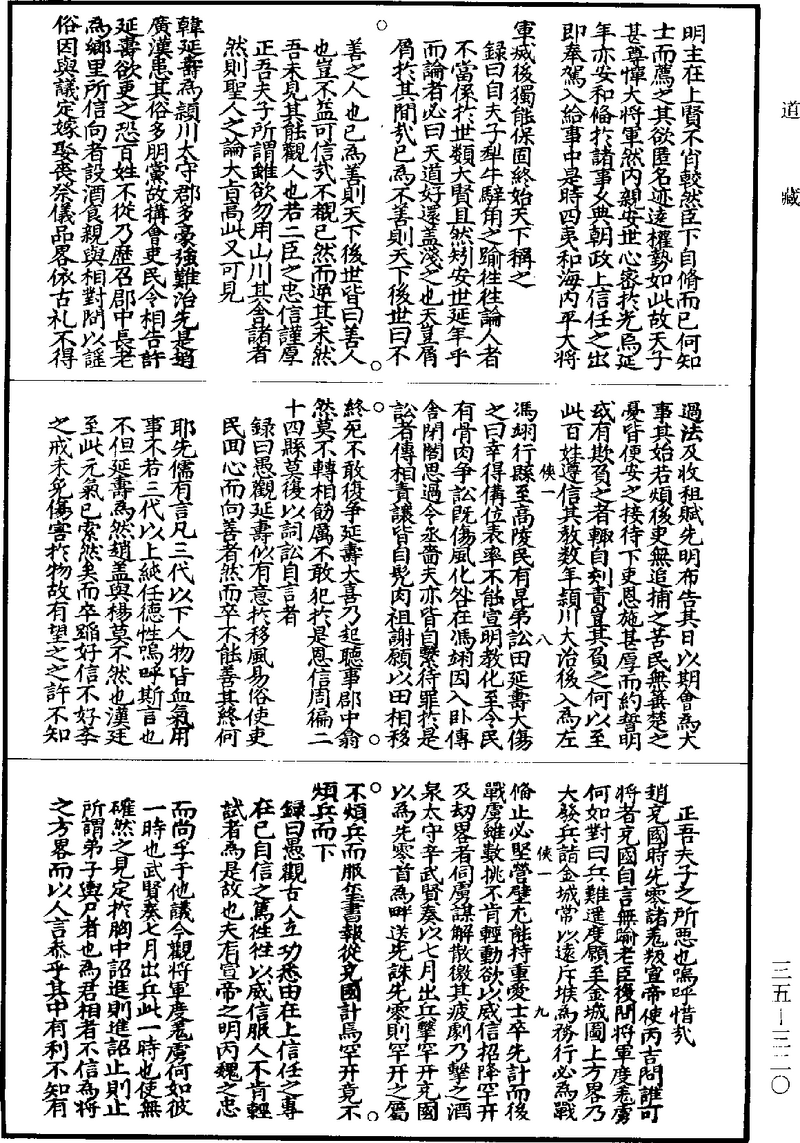 道藏
明主在上賢不肖較然臣下自脩而已何知
士而薦之其欲匿名迹遠權勢如此故天子
甚尊憚大將軍然內親安世心密於光焉延
年亦安和備於諸事乂典朝政上信任之出
即奉駕入給事中是時四夷和海內平大將
軍宬後獨能保固終始天下稱之
錄曰自夫子犁牛騂角之踰徃徃論人者
不當係於世類大賢且然矧安世延年乎
而論者必曰天道好還盖淺之也天豈屑
屑於其間㢤已為不善則天下後世曰不
善之人也已為善則天下後世皆曰善人
也豈不益可信㢤不覩已然而逆其未然
吾未見其能觀人也若二臣之忠信謹厚
正吾夫子所謂雖欲勿用山川其舍諸者
然則聖人之論大肯高此又可見
韓延壽為潁川太守郡多豪強難治先是趙
廣漢患其俗多朋黨故搆會吏民令相告訐
延壽欲更之恐百姓不從乃歷召郡中長老
為鄉里所信向者設酒食親與相對問以謡
俗因與議定嫁娶喪祭儀品畧依古礼不得
過法及收租賦先明布告其日以期會為大
事其始若煩後吏無追捕之苦民無箠楚之
憂皆便安之接待下吏恩施甚厚而約誓明
或有欺負之者輙自刻責豈其負之何以至
此百姓遵信其教數年潁川大治後入為左
俠一　八
馮翊行縣至高陵民有昆弟訟田延壽大傷
之曰幸得備位表率不能宣明教化至令民
有骨肉爭訟既傷風化咎在馮翊因入卧傳
舍閉閤思過令丞嗇夫亦皆自繫待罪於是
訟者傳相責讓皆自髠肉袒謝願以田相移
終死不敢復爭延壽大喜乃起聽事郡中翕
然莫不轉相飭厲不敢犯於是恩信周徧二
十四縣莫復以詞訟自言者
錄曰愚觀延壽似有意於移風易俗使吏
民囬心而向善者然而卒不能善其終何
耶先儒有言凡三代以下人物皆血氣用
事不若三代以上純任德性嗚呼斯言也
不但延壽為然趙盖與楊莫不然也漢廷
至此元氣已索然矣而卒蹈好信不好李
之戒未免傷害於物故有望之之許不知
正吾夫子之所惡也嗚呼惜㢤
趙充國時先零諸羌叛宣帝使丙吉問誰可
將者充國自言無踰老臣復問將軍度羌虜
何如對曰兵難遥度願至金城圖上方畧乃
大發兵詣金城常以遠斥堠為務行必為戰
俠一　九
脩止必堅營壁尤能持重愛士卒先計而後
戰虜雖數挑不肯輕動欲以威信招降罕开
及刼畧者伺虜謀解散徼其疲劇乃擊之酒
泉太守辛武賢奏以七月出兵擊罕开充國
以為先零首為畔逆先誅先零則罕开之屬
不煩兵而服壐書報從充國計焉罕开竟不
煩兵而下
錄曰愚觀古人立功悉由在上信任之專
在已自信之篤徃徃以威信服人不肯輕
試者為是故也夫有宣帝之明丙魏之忠
而尚乎于他議今觀將軍度羌虜何如彼
一時也武賢奏七月出兵此一時也使無
確然之見定於胸中詔進則進詔止則止
所謂弟子輿尸者也為君相者不信為將
之方畧而以人言叅乎其中有利不知有
三五—三二〇